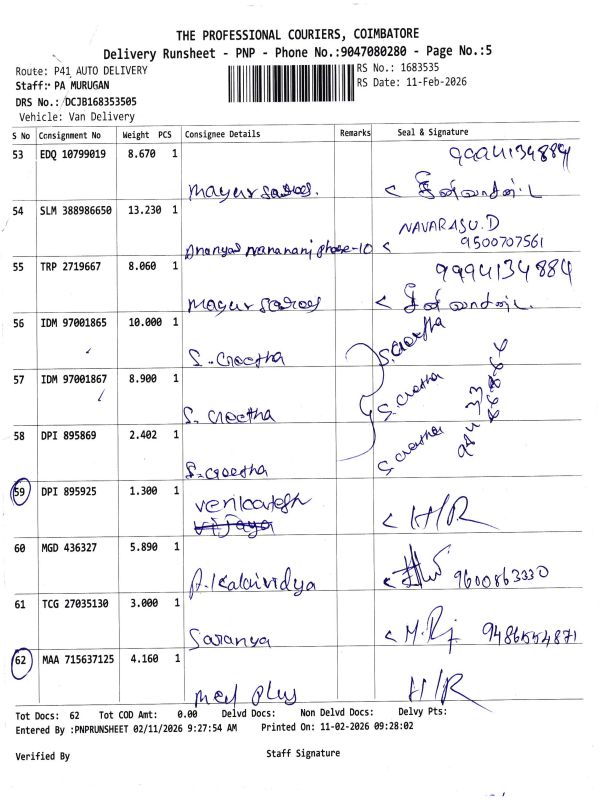 THE PROFESSIONAL COURIERS, COIMBATORE
Delivery Runsheet - PNP - Phone No.:9047080280 - Page No.:5
Route: P41 AUTO DELIVERY
RS No.: 1683535
Staff: PA MURUGAN
RS Date: 11-Feb-2026
DRS No.: DCJB168353505
Vehicle: Van Delivery
S No Consignment No Weight PCS Consignee Details Remarks Seal & Signature
53 EDQ 10799019 8.670 1
Mayur
54 SLM 388986650 13.230 1 NAVARASU.D
phase-10 9500707561
55 TRP 2719667 8.060 1 9994134884
Mayur
56 IDM 97001865 10.000 1
S. Geetha
57 IDM 97001867 8.900 1
S. Geetha
58 DPI 895869 2.402 1
S. Geetha
59 DPI 895925 1.300 1 Venkatesh H/R
Vijaya
60 MGD 436327 5.890 1
A. Kalaividya 9600863330
61 TCG 27035130 3.000 1
Saranya
62 MAA 715637125 4.160 1
Med Plus H/R
Tot Docs: 62 Tot COD Amt: 0.00 Delvd Docs: Non Delvd Docs: Delvy Pts:
Entered By :PNPRUNSHEET 02/11/2026 9:27:54 AM Printed On: 11-02-2026 09:28:02
Verified By Staff Signature